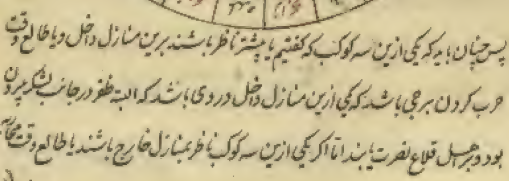 پس چنان باید که یکی ازین سه کوکب که گفتیم یا بیشتر ناظر باشند برین منازل داخل و یا طالع وقت
حرب کردن برجی باشد که یکی ازین منازل داخل در وی باشد که البته ظفر در جانب لشکر بیرون
بود و بر اهل قلاع نصرت یابند اما اگر یکی ازین سه کوکب ناظر بمنازل خارج باشند یا طالع وقت محاربه